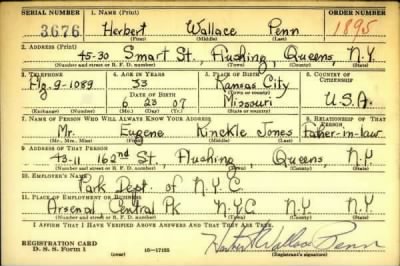 SERIAL NUMBER 1. NAME (Print) ORDER NUMBER
3676 Herbert Wallace Penn 1895
(First) (Middle) (Last)
2. ADDRESS (Print)
45-30 Smart St., Flushing, Queens, N.Y.
(Number and street or R. F. D. number) (Town) (County) (State)
3. TELEPHONE 4. AGE IN YEARS 5. PLACE OF BIRTH 6. COUNTRY OF CITIZENSHIP
Flg. 9-1089 33 Kansas City
DATE OF BIRTH (Town or county)
6 23 07 Missouri U.S.A.
(Exchange) (Number) (Mo.) (Day) (Yr.) (State or country)
7. NAME OF PERSON WHO WILL ALWAYS KNOW YOUR ADDRESS 8. RELATIONSHIP OF THAT PERSON
Mr. Eugene Kinckle Jones Father-in-law
(Mr., Mrs., Miss) (First) (Middle) (Last)
9. ADDRESS OF THAT PERSON
43-11 162nd St., Flushing Queens N.Y
(Number and street or R. F. D. number) (Town) (County) (State)
10. EMPLOYER'S NAME
Park Dept. of N.Y.C.
11. PLACE OF EMPLOYMENT OR BUSINESS
Arsenal Central Pk N.Y.C N.Y N.Y.
(Number and street or R. F. D. number) (Town) (County) (State)
I AFFIRM THAT I HAVE VERIFIED ABOVE ANSWERS AND THAT THEY ARE TRUE.
REGISTRATION CARD
D. S. S. Form 1 16-17105 Herbert Wallace Penn
(over) (Registrant's signature)